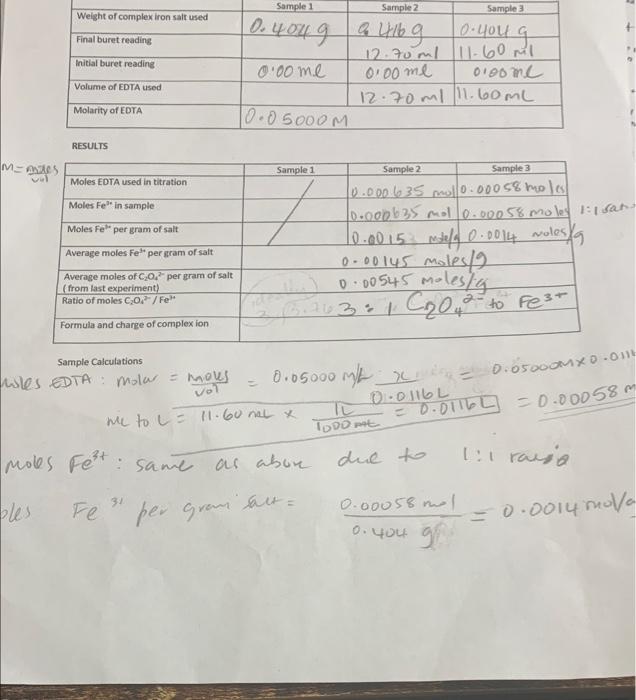 Sample 1 Sample 2 Sample 3
Weight of complex iron salt used 0.404 g 0.416 g 0.404 g
Final buret reading 12.70 ml 11.60 ml
Initial buret reading 0.00 ml 0.00 ml 0.00 ml
Volume of EDTA used 12.70 ml 11.60 ml
Molarity of EDTA 0.05000 M
RESULTS
M = moles/vol
Sample 1 Sample 2 Sample 3
Moles EDTA used in titration 0.000635 mol 0.00058 moles
Moles Fe³⁺ in sample 0.000635 mol 0.00058 moles 1:1
Moles Fe³⁺ per gram of salt 0.0015 mole/g 0.0014 moles/g
Average moles Fe³⁺ per gram of salt 0.00145 moles/g
Average moles of C₂O₄²⁻ per gram of salt 0.00545 moles/g
(from last experiment)
Ratio of moles C₂O₄²⁻ / Fe³⁺ 3:1 C₂O₄²⁻ to Fe³⁺
Formula and charge of complex ion
Sample Calculations
moles EDTA : molar = moles/vol = 0.05000 M x/0.0116L = 0.05000M x 0.0116
mL to L = 11.60 mL x 1L/1000 mL = 0.0116L = 0.00058 m
moles Fe³⁺ : same as above due to 1:1 ratio
oles Fe³⁺ per gram salt = 0.00058 mol/0.404 g = 0.0014 mol/g